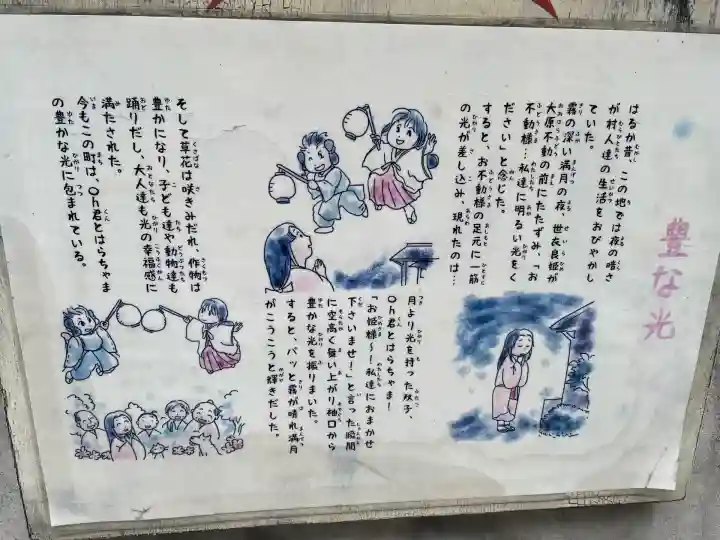 豊な光
はるか昔、この地では夜の暗さ
が村人達の生活をおびやかし
ていた。
霧の深い満月の夜、世衣良姫が
大原不動の前にたたずみ、「お
不動様…私達に明るい光をく
ださい」と念じた。
すると、お不動様の足元に一筋
の光が差し込み、現れたのは…
月より光を持った双子、
Oh君とはらちゃま!
「お姫様〜!私達におまかせ
下さいませ!」と言った瞬間
に空高く舞い上がり袖口から
豊かな光を振りまいた。
すると、パッと霧が晴れ満月
がこうこうと輝きだした。
そして草花は咲きみだれ、作物は
豊かになり、子ども達や動物達も
踊りだし、大人達も光の幸福感に
満たされた。
今もこの町は、Oh君とはらちゃま
の豊かな光に包まれている。